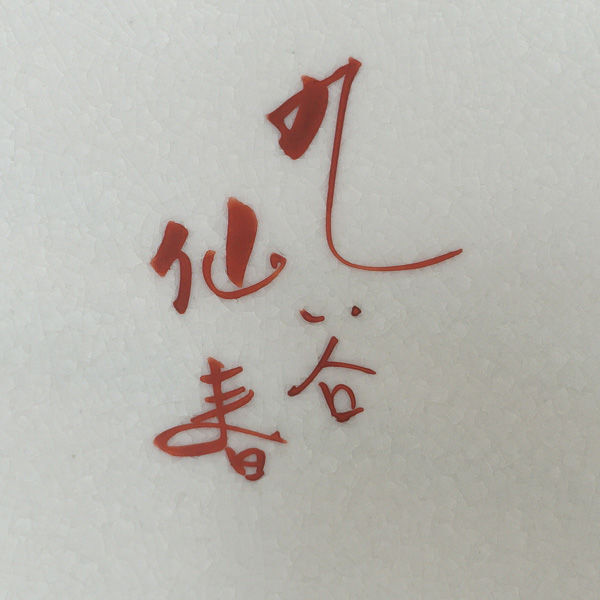 九谷
仙春